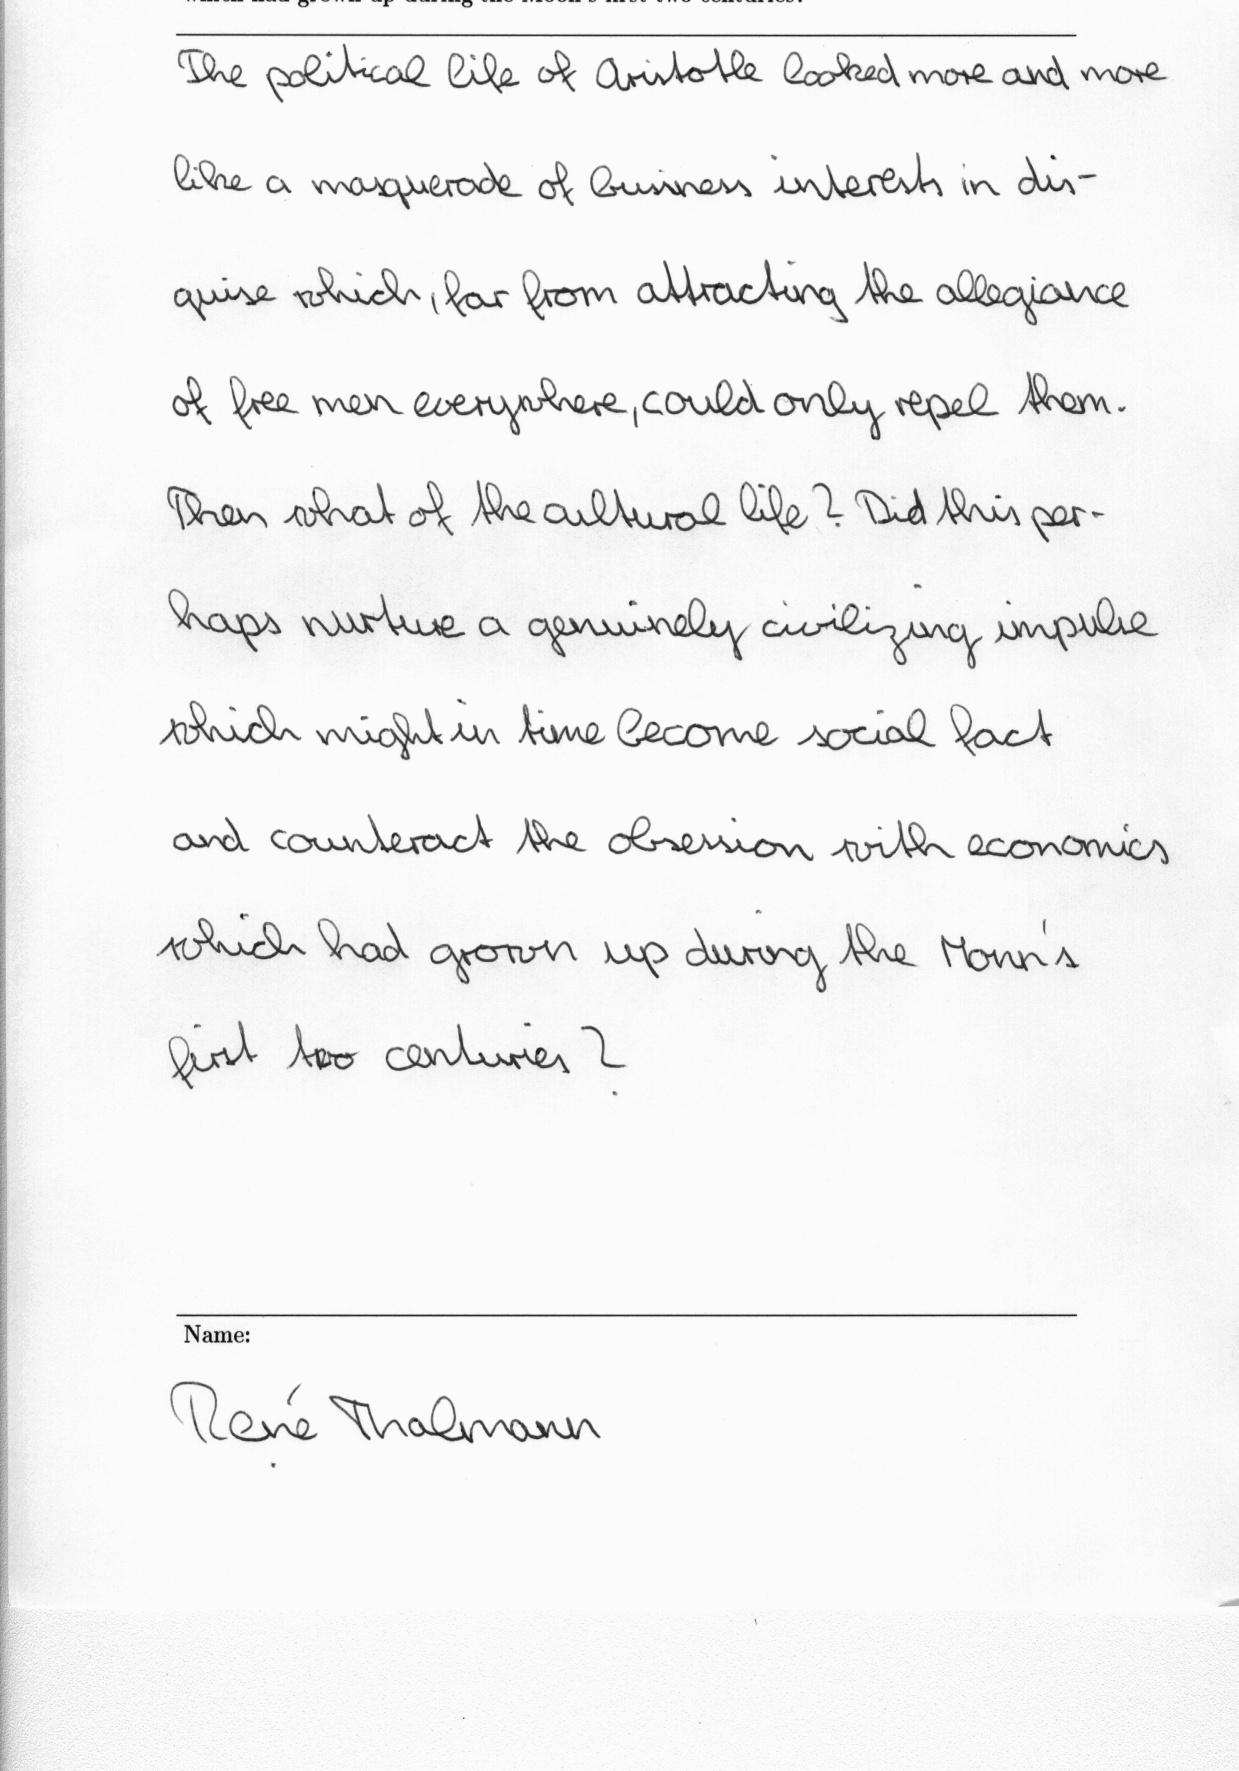 which had grown up during the Moon's first two centuries?
The political life of Aristotle looked more and more
like a masquerade of business interests in dis-
guise which, far from attracting the allegiance
of free men everywhere, could only repel them.
Then what of the cultural life? Did this per-
haps nurture a genuinely civilizing impulse
which might in time become social fact
and counteract the obsession with economics
which had grown up during the Monn's
first two centuries?
Name:
René Thalmann